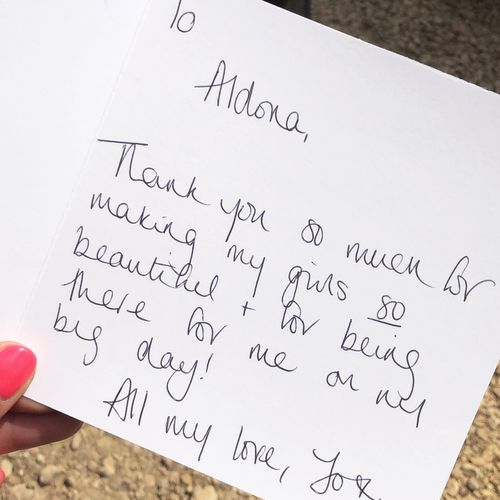 To
Aldona,
Thank you so much for
making my girls so
beautiful + for being
there for me on my
big day!
All my love,